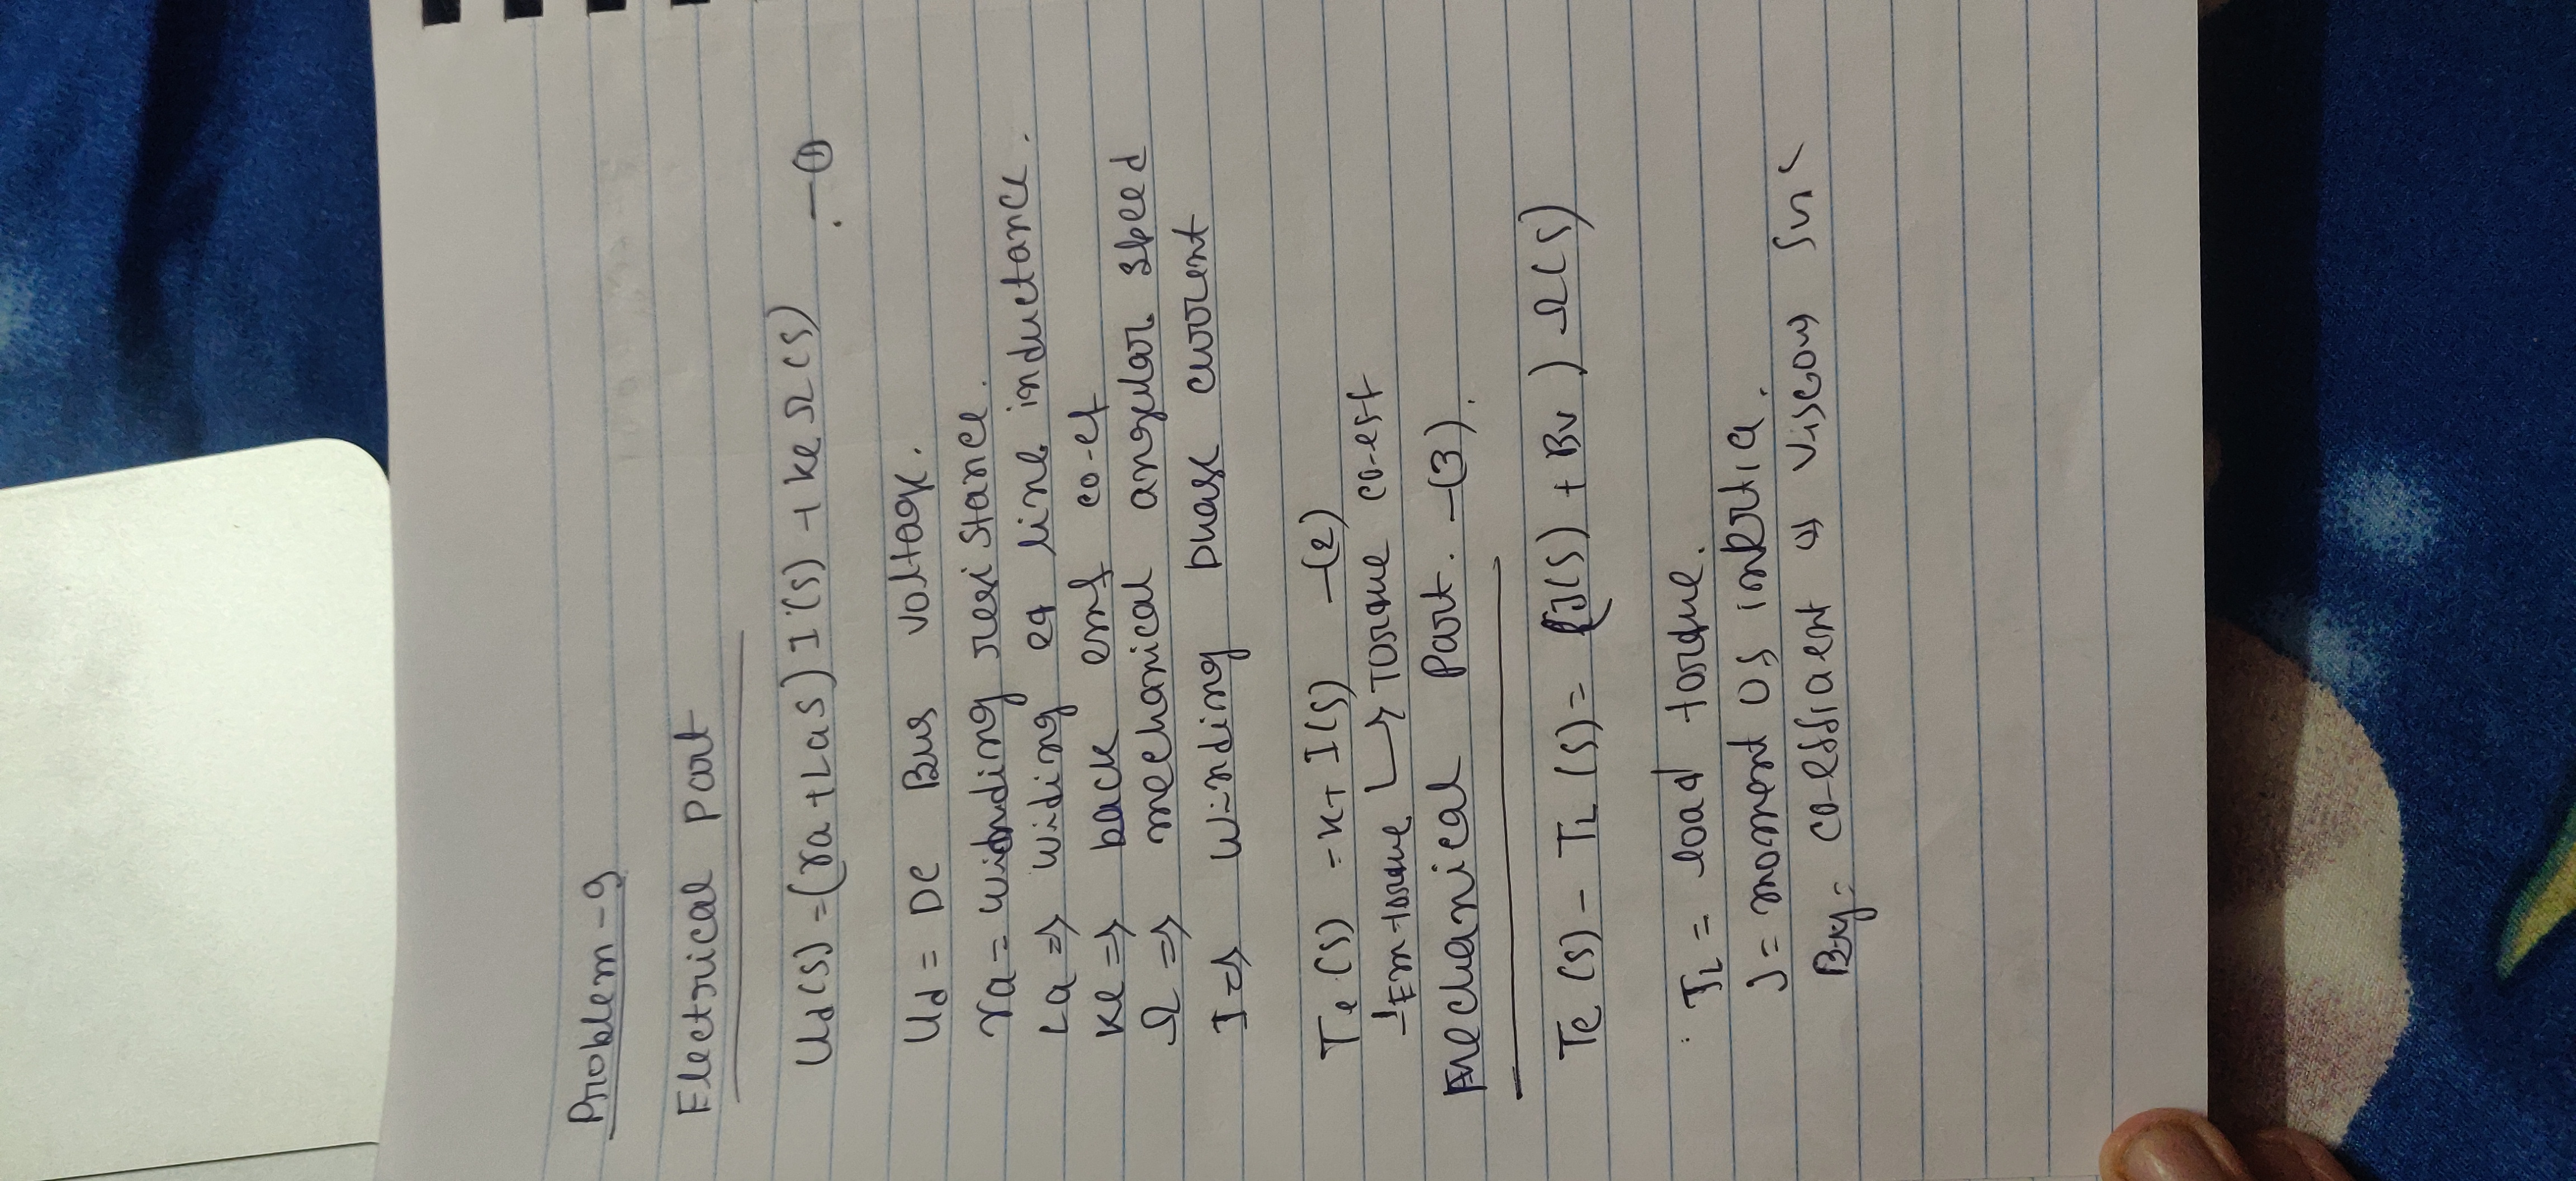 Problem-9
Electrical Part
Ud(s)=(ra+Las) I(s) + ke Ω(s) -①
Ud = DC Bus voltage.
ra = winding resistance.
La => Widing eq line inductance.
Ke => back emf co-ef
Ω => mechanical angular speed
I => Winding phase current
Te(s) = KT I(s) -(2)
Em torque ↳ Torque co-eff
Mechanical Part. -(3).
Te(s) - TL(s) = (J(s) + Bv) Ω(s)
TL = load torque.
J = moment of inertia.
= co-efficient of viscous